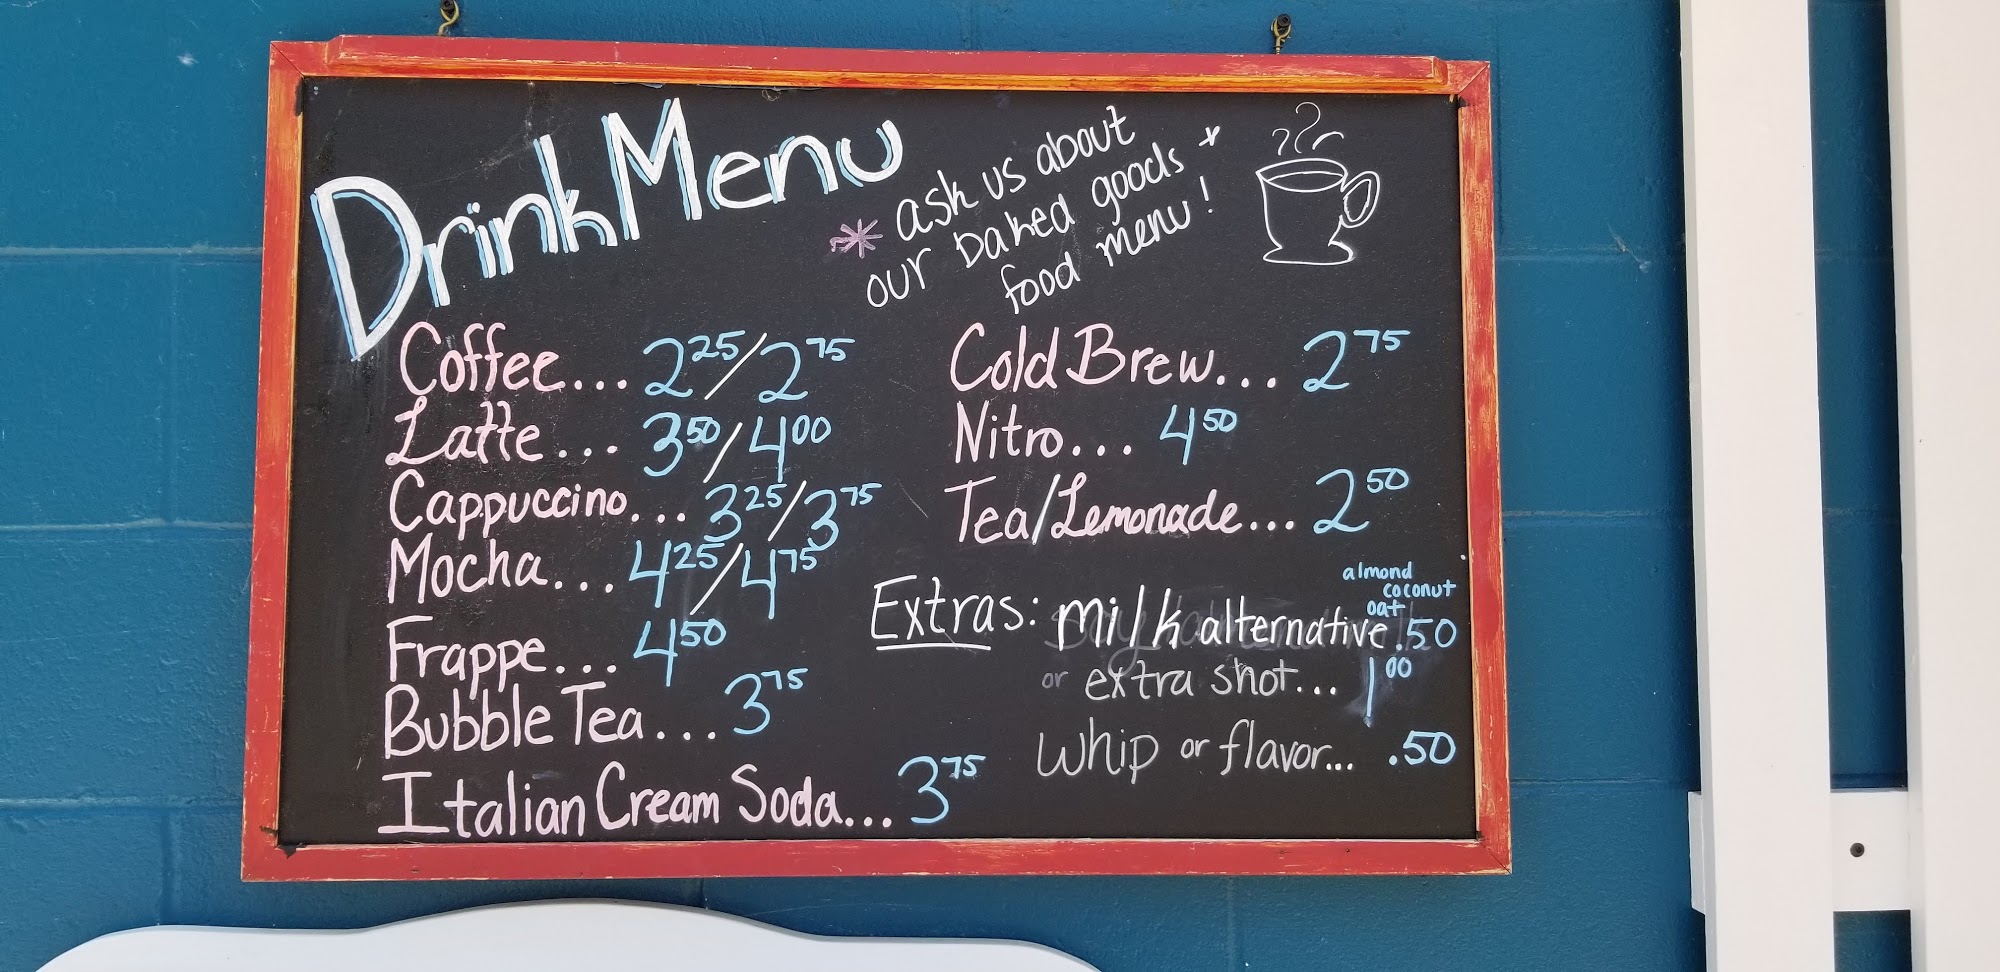 Drink Menu
* ask us about
our baked goods *
food menu!
Coffee... 2.25/2.75
Latte... 3.50/4.00
Cappuccino... 3.25/3.75
Mocha... 4.25/4.75
Frappe... 4.50
Bubble Tea... 3.75
Italian Cream Soda... 3.75
Cold Brew... 2.75
Nitro... 4.50
Tea/Lemonade... 2.50
almond
coconut
oat
Extras: milk alternative .50
or extra shot... 1.00
whip or flavor... .50